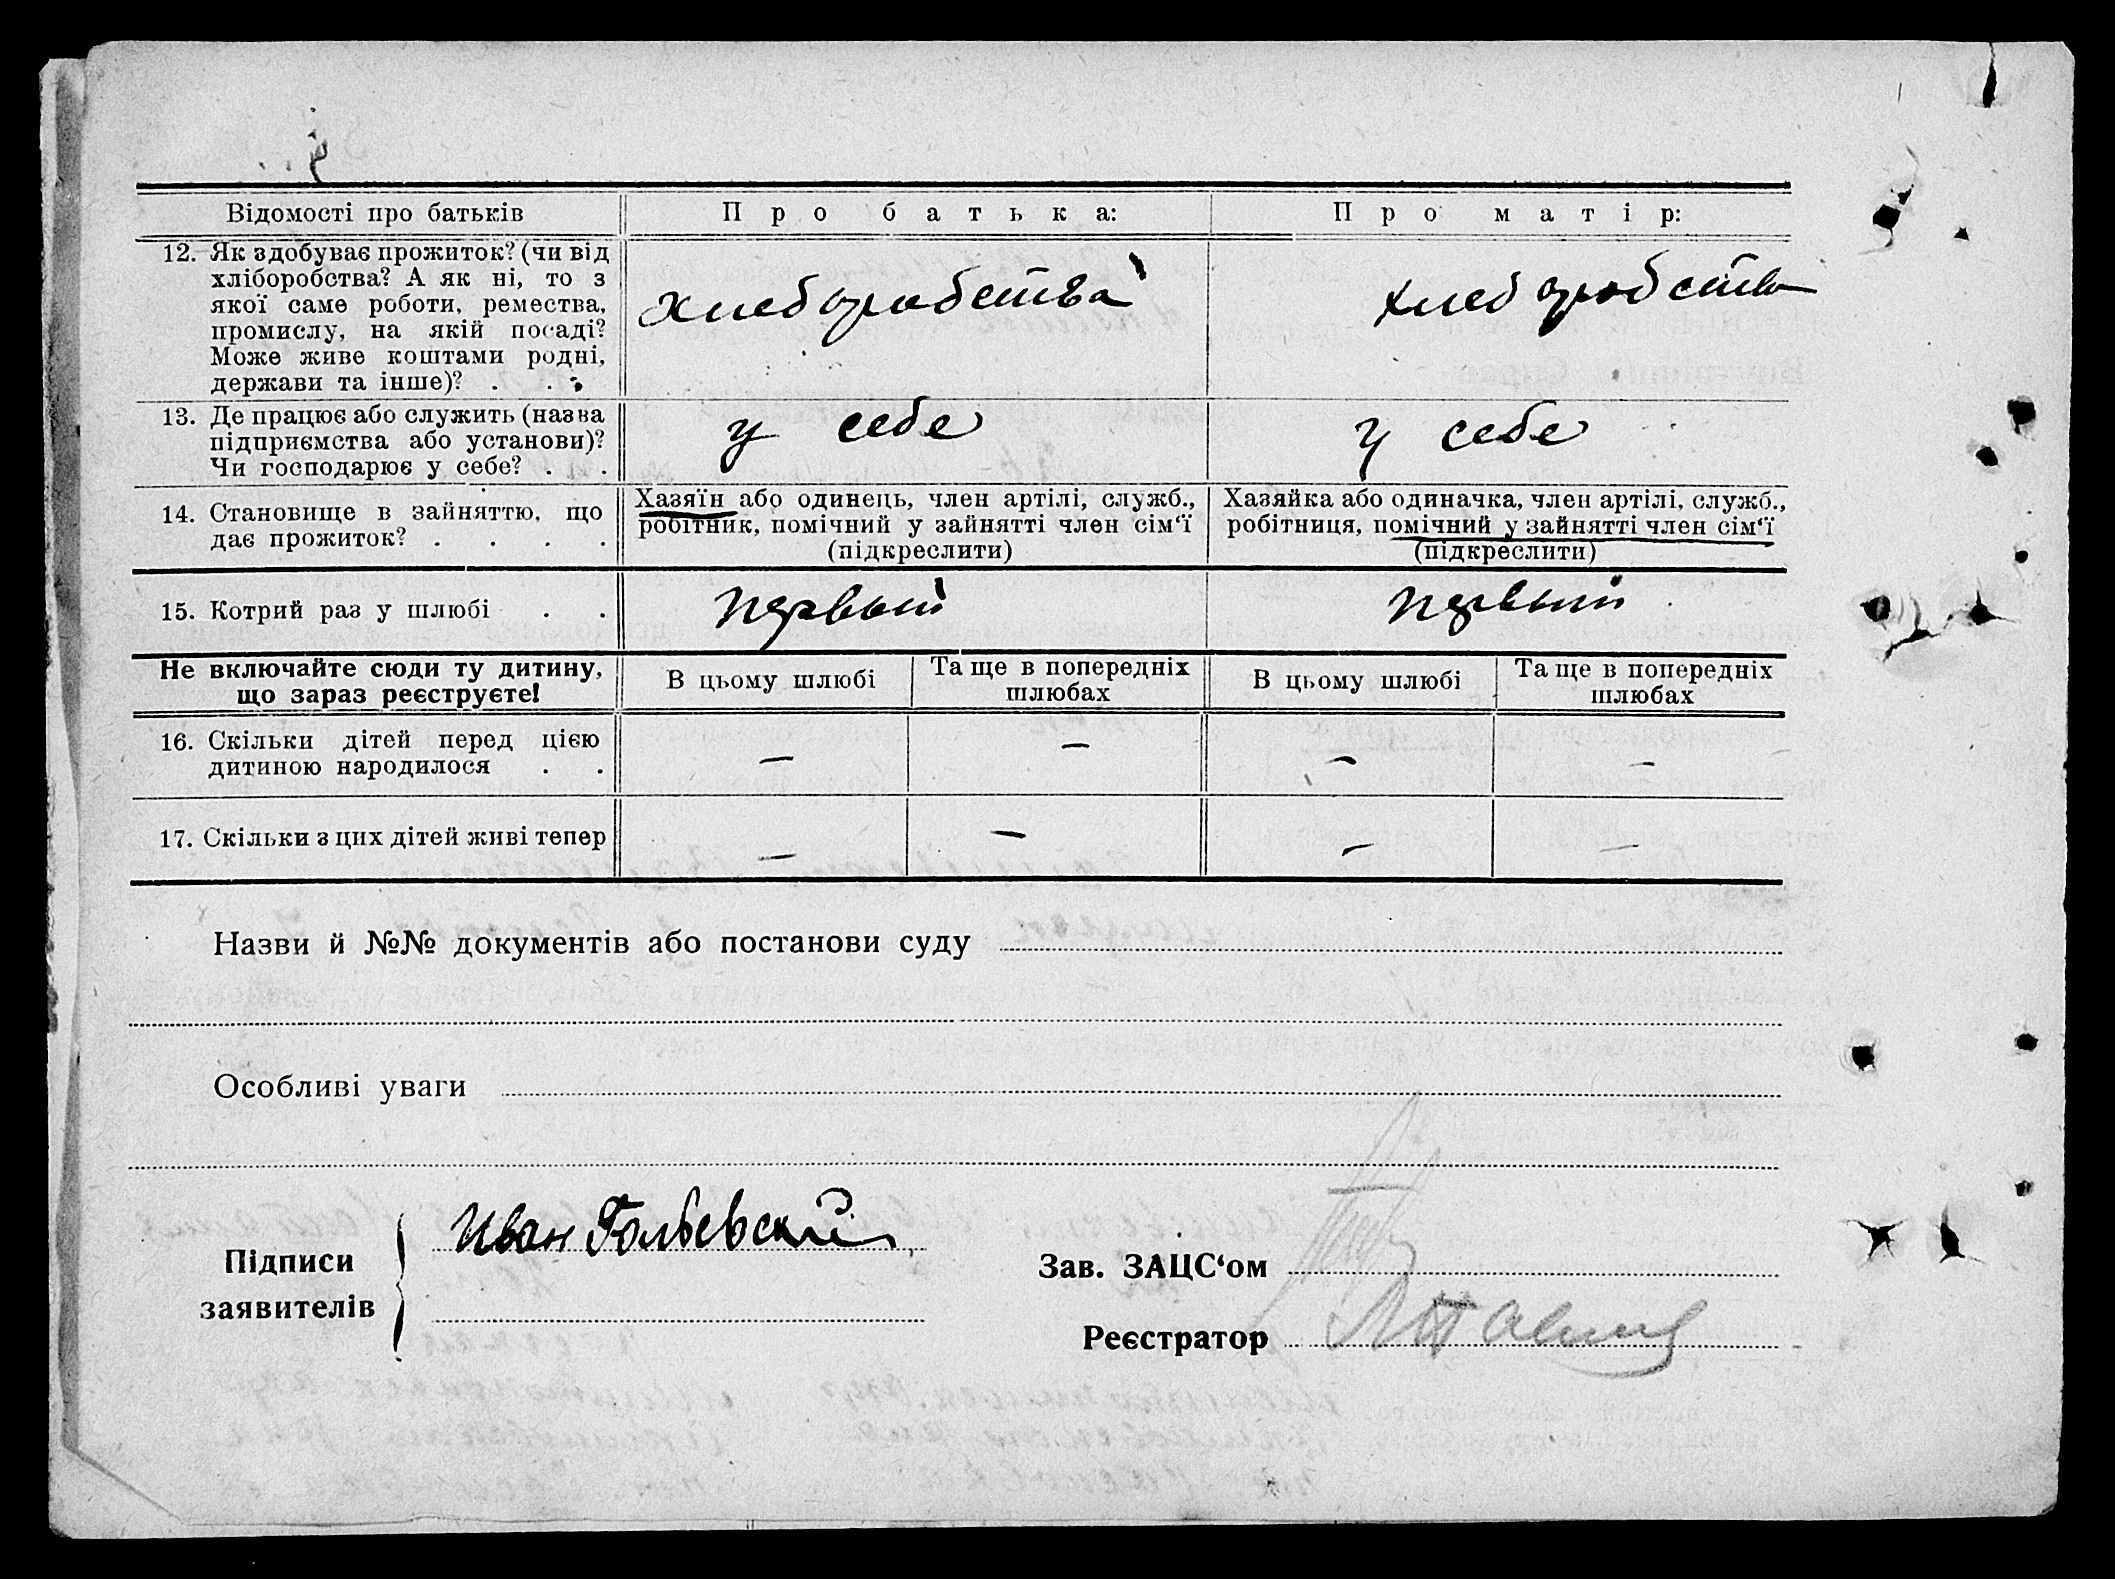 Відомості про батьків Про батька: Про матір:
12. Як здобуває прожиток? (чи від
хліборобства? А як ні, то з
якої саме роботи, ремества,
промислу, на якій посаді?
Може живе коштами родні,
держави та інше)? . . .
хлеборобства хлеборобства
13. Де працює або служить (назва
підприємства або установи)?
Чи господарює у себе? . .
у себе у себе
14. Становище в зайняттю, що
дає прожиток? . . . .
Хазяїн або одинець, член артілі, служб.,
робітник, помічний у зайнятті член сім'ї
(підкреслити)
Хазяйка або одиначка, член артілі, служб.,
робітниця, помічний у зайнятті член сім'ї
(підкреслити)
15. Котрий раз у шлюбі . . первый первый
Не включайте сюди ту дитину,
що зараз реєструєте!
В цьому шлюбі Та ще в попередніх
шлюбах
В цьому шлюбі Та ще в попередніх
шлюбах
16. Скільки дітей перед цією
дитиною народилося . .
— — — —
17. Скільки з цих дітей живі тепер — — — —
Назви й №№ документів або постанови суду
Особливі уваги
Підписи
заявителів
Иван
Зав. ЗАЦС'ом
Реєстратор